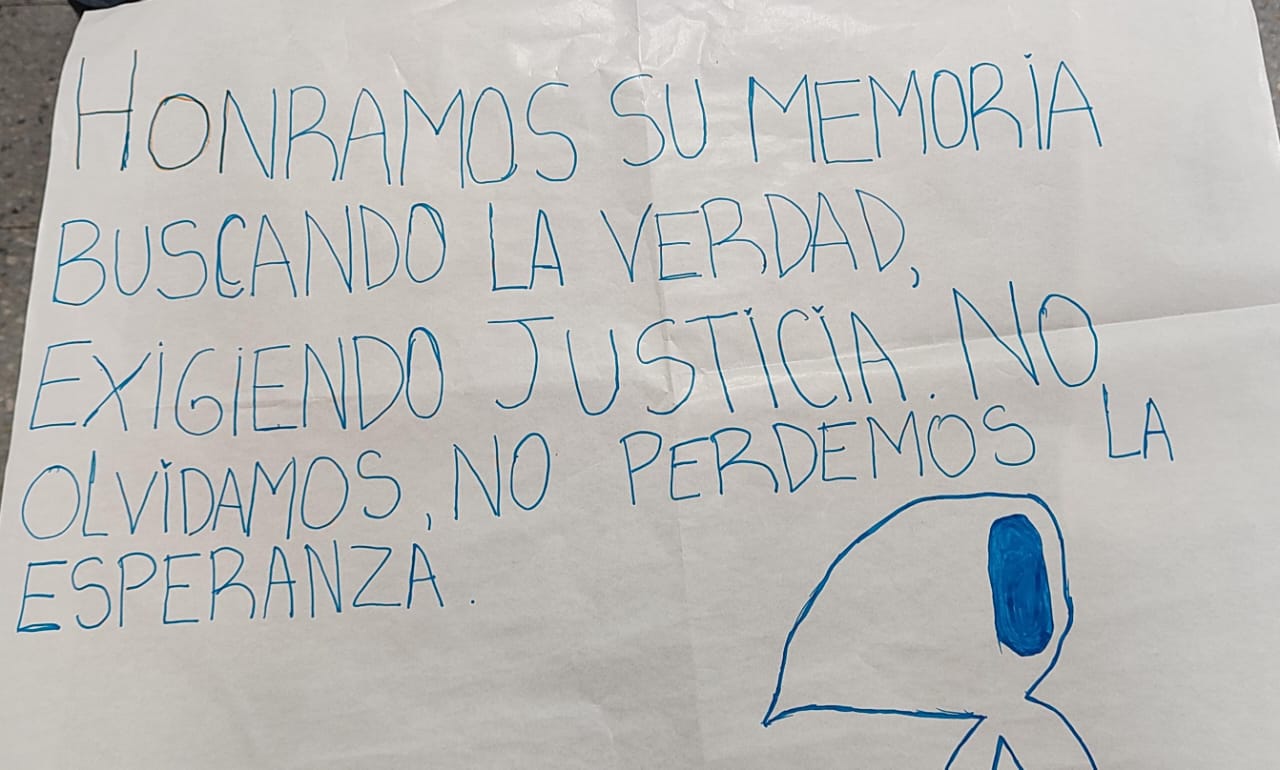 HONRAMOS SU MEMORIA
BUSCANDO LA VERDAD,
EXIGIENDO JUSTICIA. NO
OLVIDAMOS, NO PERDEMOS LA
ESPERANZA.